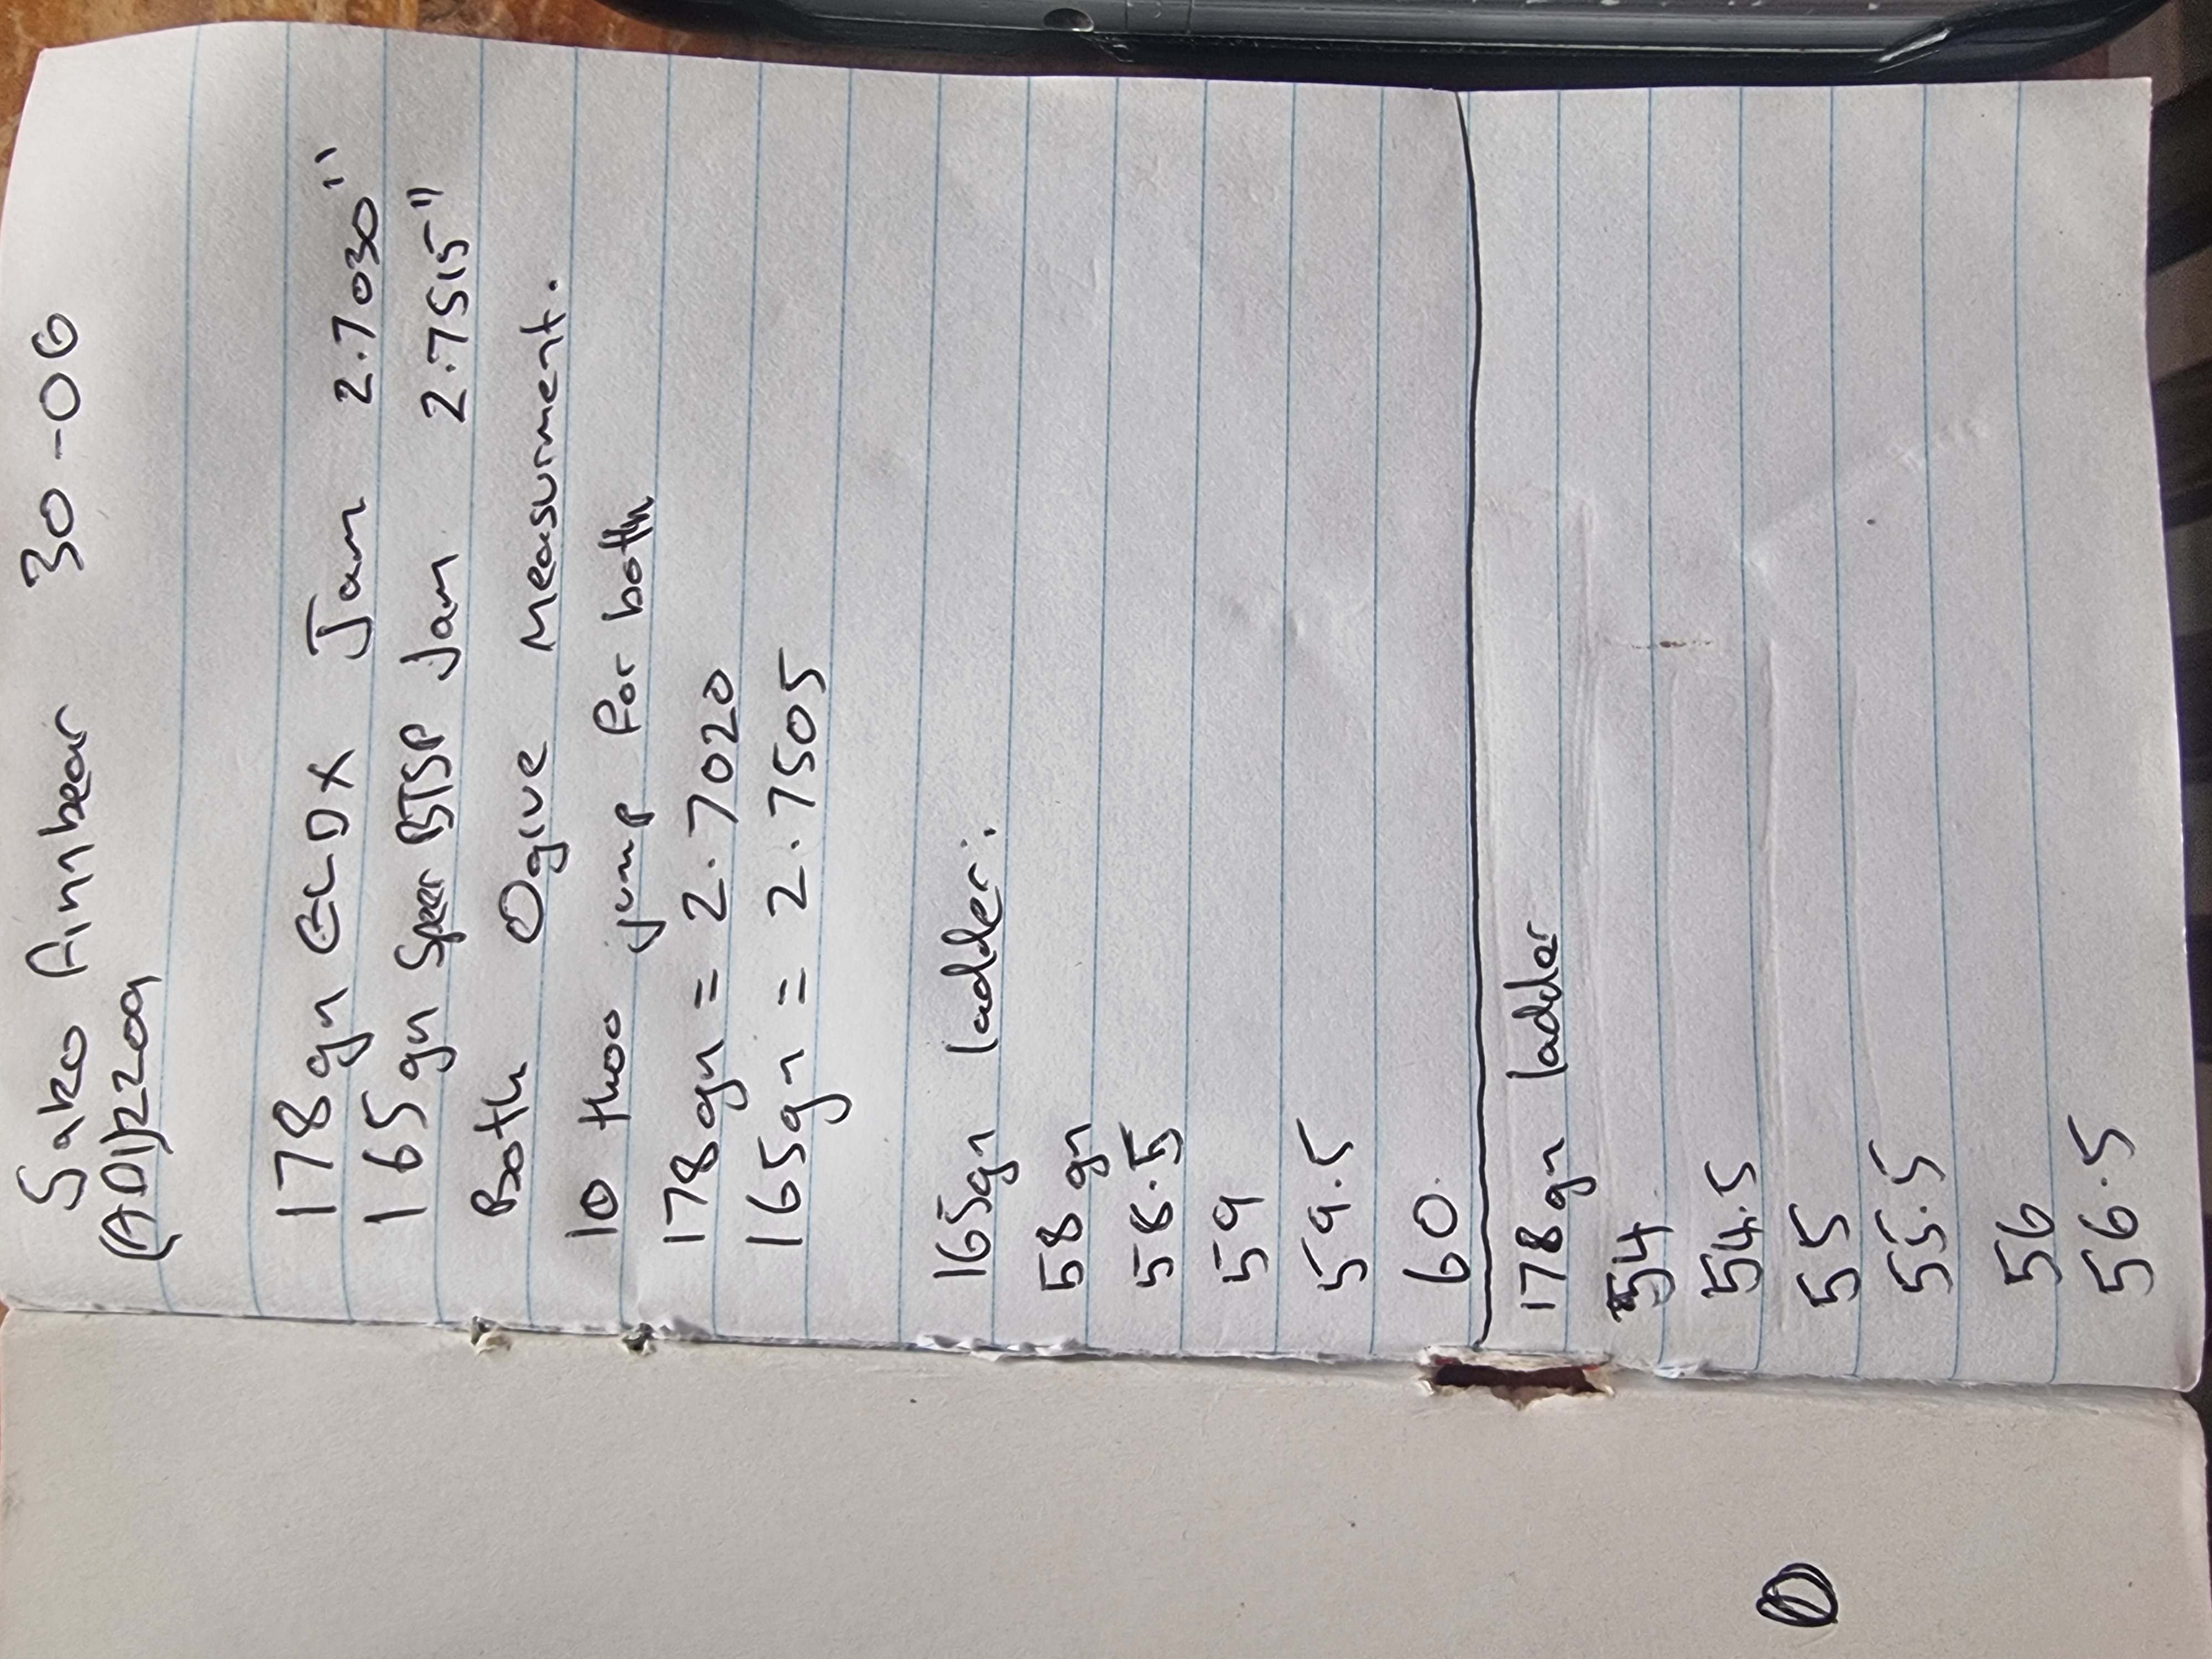 Sako Finnbear 30-06
(ADI)2209
178gn ELDX Jam 2.7030"
165gn Speer BTSP Jam 2.7515"
Both Ogive Measurment.
10 thoo jump for both
178gn = 2.7020
165gn = 2.7505
165gn ladder:
58gn
58.5
59
59.5
60.
178gn ladder
54
54.5
55
55.5
56
56.5